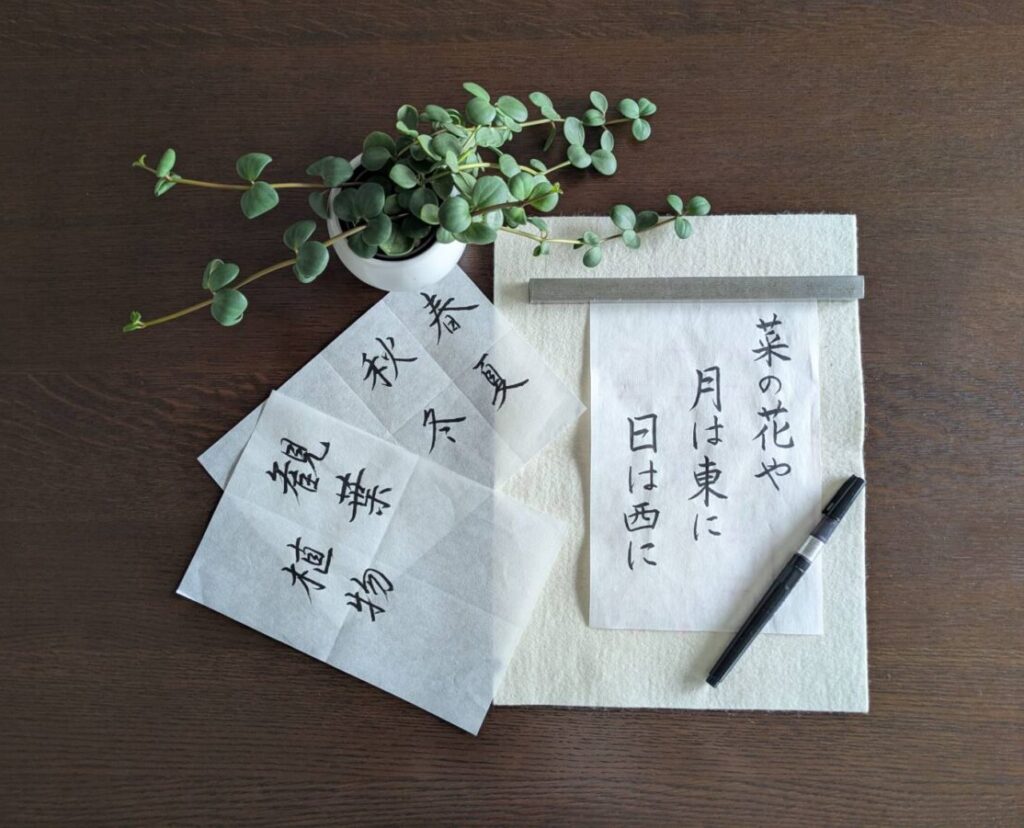 菜の花や
月は東に
日は西に
春夏
秋冬
観葉
植物